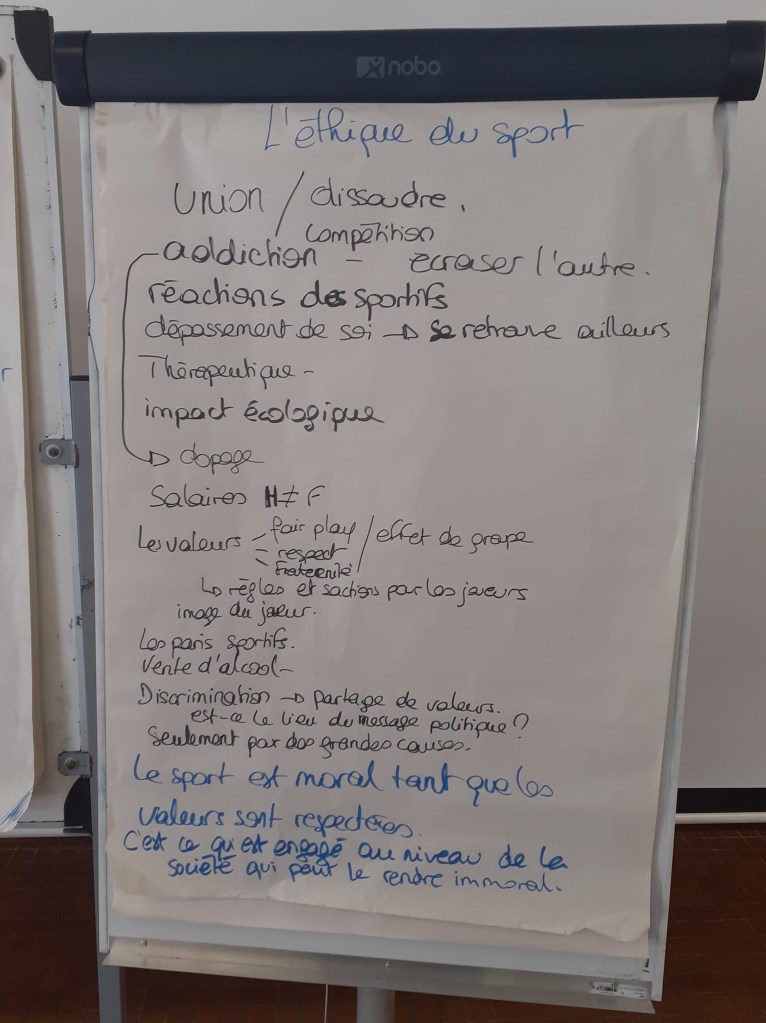 nobo
L'éthique du sport
Union / dissoudre.
compétition
addiction - écraser l'autre.
réactions des sportifs
dépassement de soi → se retrouve ailleurs
Thérapeutique -
impact écologique
→ dopage
Salaires H ≠ F
Les valeurs - fair play / effet de groupe
- respect
- fraternité
↳ règles et sactions par les joueurs
image du joueur.
Les paris sportifs.
Vente d'alcool -
Discrimination → partage de valeurs.
est-ce le lieu du message politique ?
Seulement par des grandes causes.
Le sport est moral tant que les
valeurs sont respectées.
C'est ce qui est engagé au niveau de la
société qui peut le rendre immoral.